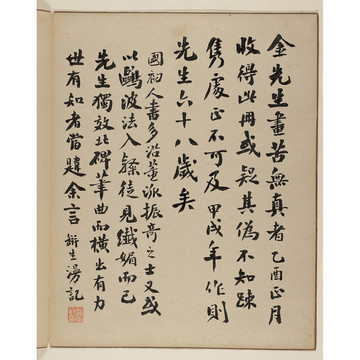 金先生畫苦無真者乙酉正月
收得此冊或疑其偽不知疎
雋處正不可及甲戌年作則
先生六十八歲矣
國初人書多沿董派振奇之士又或
以鷗波法入錄徒見纖媚而已
先生獨效北碑筆曲而橫出有力
世有知者當韙余言 新生漫記